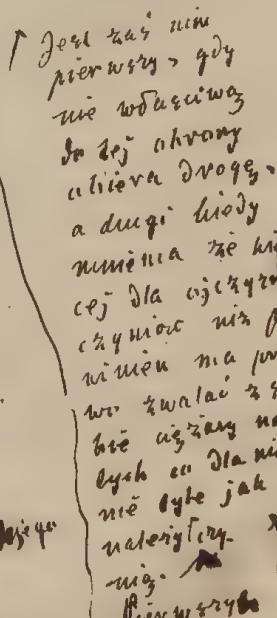 Jest zaś nim
pierwszy, gdy
nie właściwą
do tej
obiera drogę,
a drugi kiedy
mniema że wię
cej dla ojczyzn
czyniąc niż p
winien ma pra
wo zwalać z s
bie ciężary na
tych co dla ni
nie tyle jak
należy
nią.
Pierwszy